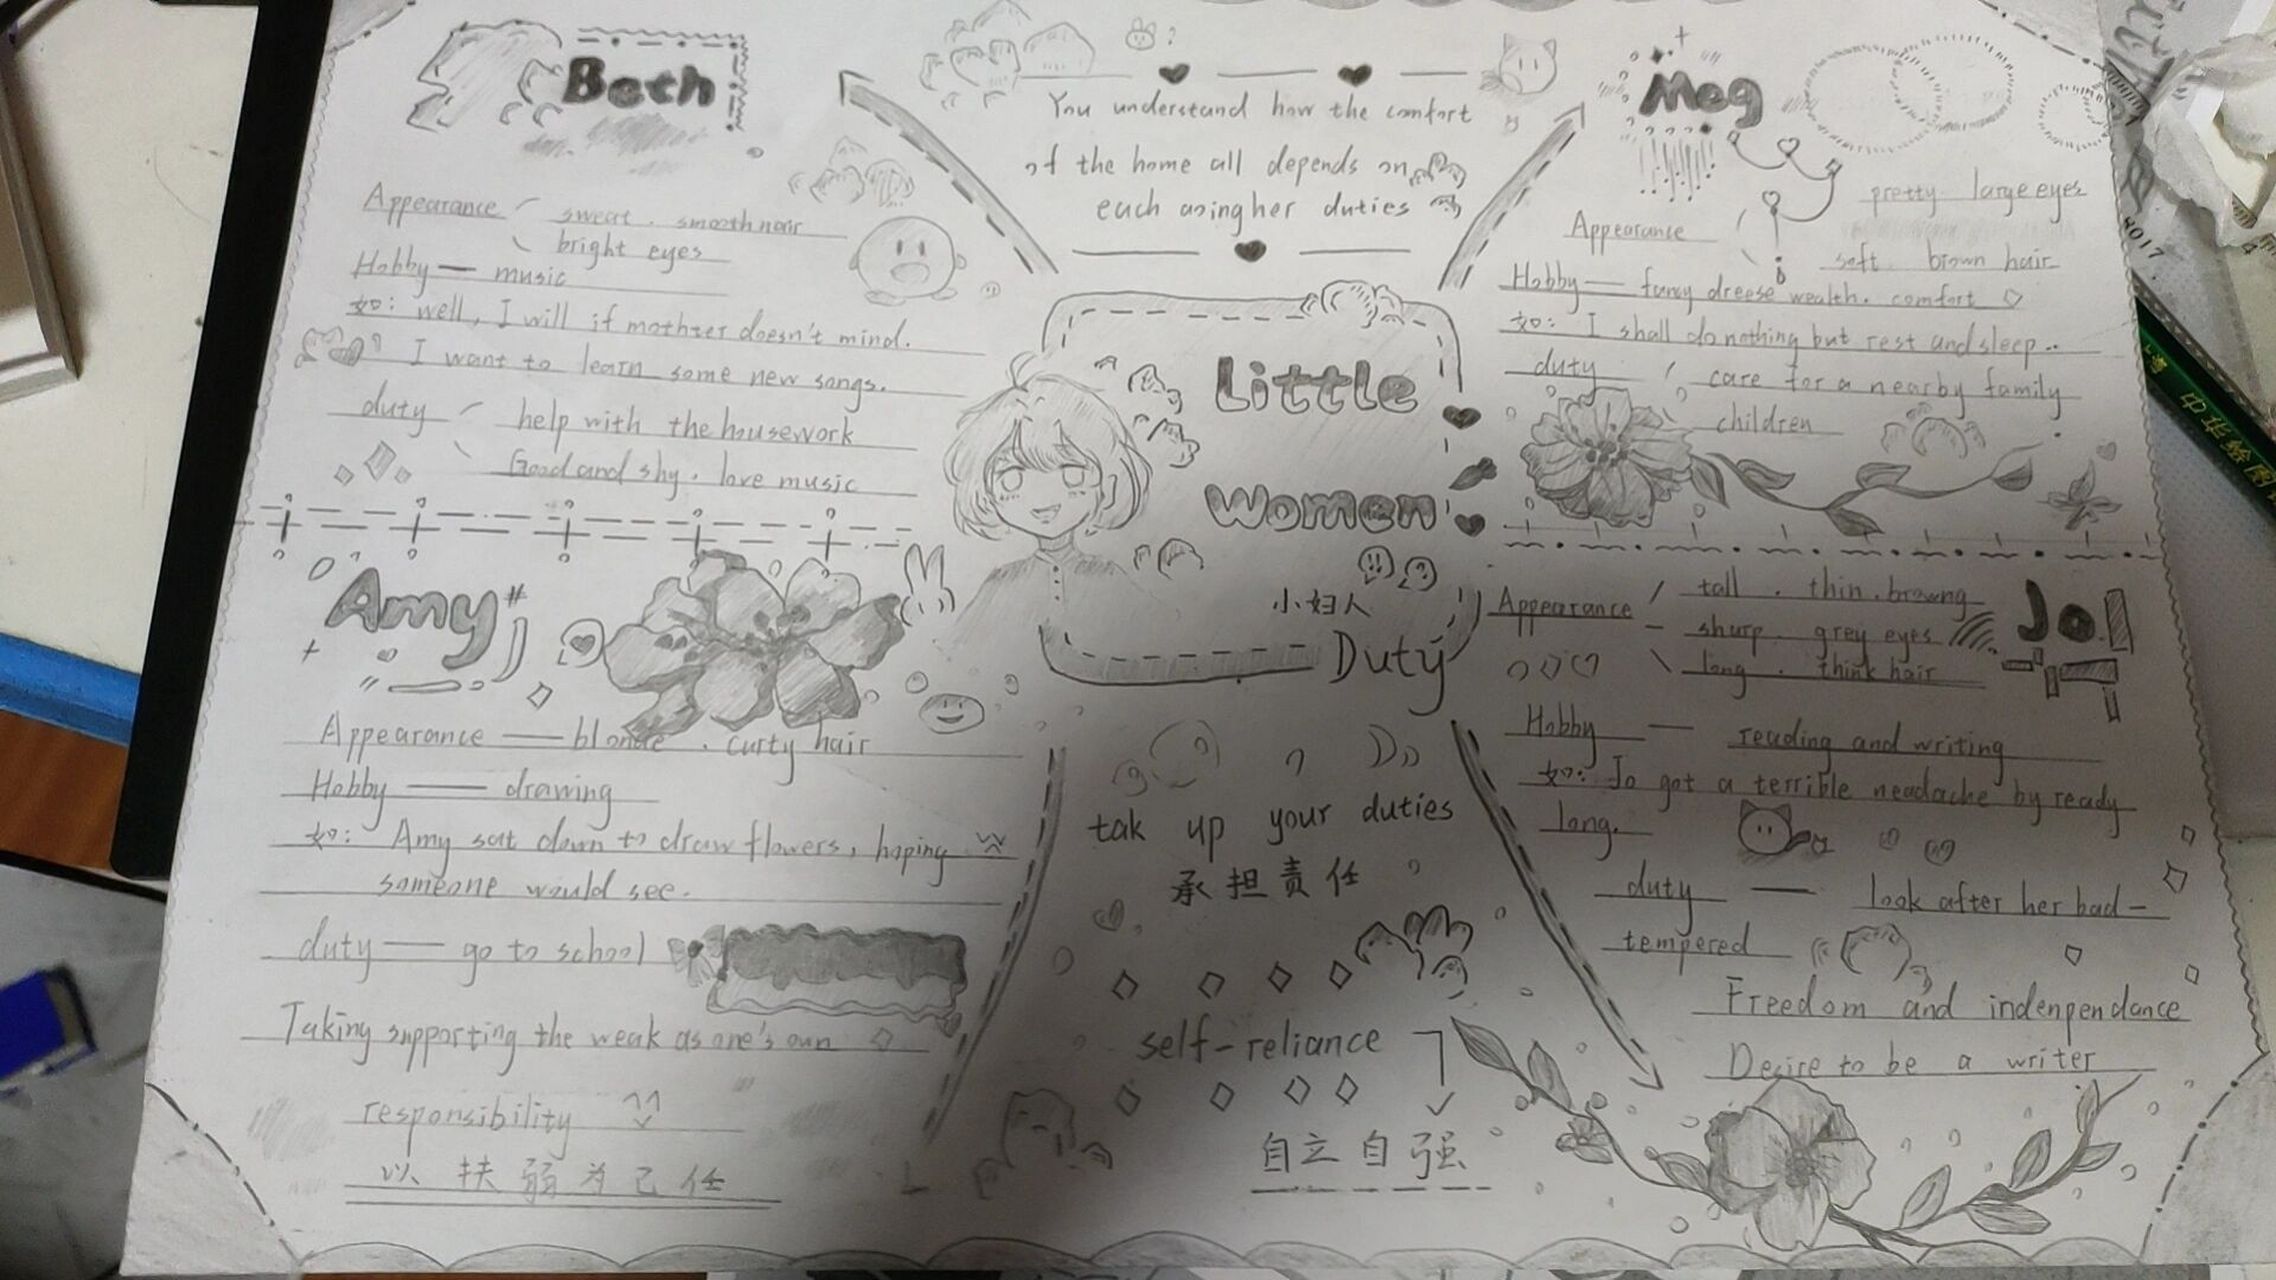 Beth
Appearance sweat. smooth hair
bright eyes
Hobby — music
如: well, I will if mothter doesn't mind.
I want to learn some new songs.
duty help with the housework
Good and shy. love music
You understand how the comfort
of the home all depends on
each asing her duties
Meg
pretty large eyes
Appearance
soft brown hair
Hobby — fancy dreese wealth. comfort
如: I shall do nothing but rest and sleep..
duty care for a nearby family
children
Little
Women
小妇人
Duty
Amy
Appearance — blonde. curty hair
Hobby — drawing
如: Amy sat down to draw flowers, hoping
someone would see.
duty — go to school
Taking supporting the weak as one's own
responsibility
以扶弱为己任
Jo
Appearance tall. thin. browng
sharp. grey eyes
long. think hair
Hobby — reading and writing
如: Jo got a terrible neadache by ready
long.
duty — look after her bad-
tempered
Freedom and indenpendance
Desire to be a writer
tak up your duties
承担责任
self-reliance
自立自强
8017
中华绘图